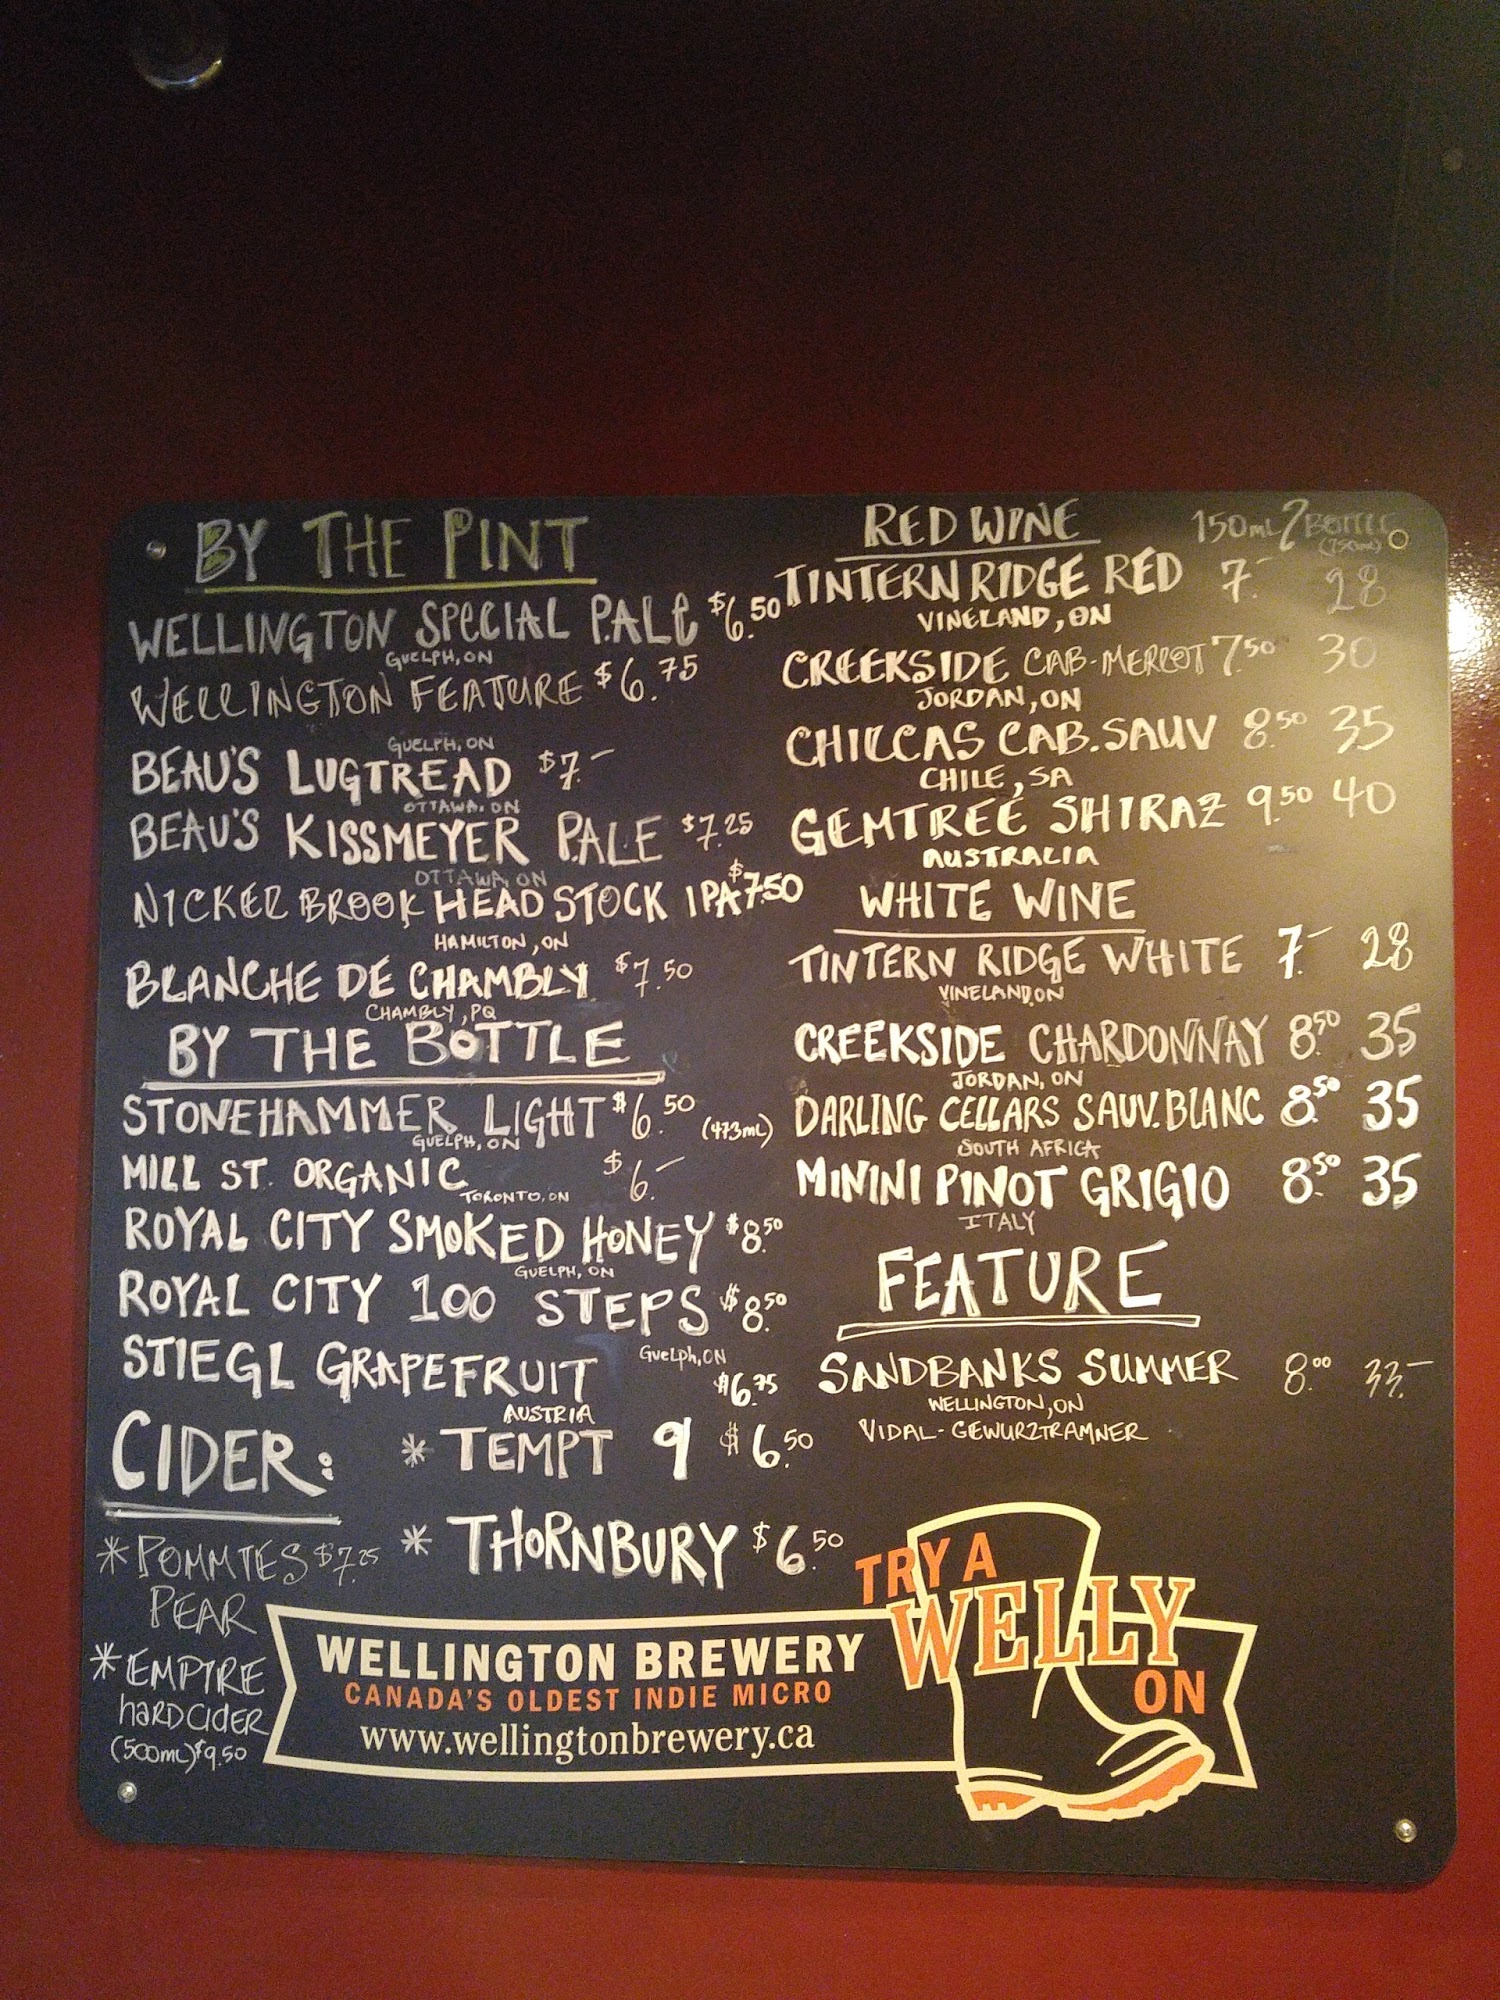 BY THE PINT
WELLINGTON SPECIAL PALE $6.50
GUELPH, ON
WELLINGTON FEATURE $6.75
GUELPH, ON
BEAU'S LUGTREAD $7.-
OTTAWA, ON
BEAU'S KISSMEYER PALE $7.25
OTTAWA, ON
NICKEL BROOK HEAD STOCK IPA $7.50
HAMILTON, ON
BLANCHE DE CHAMBLY $7.50
CHAMBLY, PQ
BY THE BOTTLE
STONEHAMMER LIGHT $6.50 (473mL)
GUELPH, ON
MILL ST. ORGANIC $6.-
TORONTO, ON
ROYAL CITY SMOKED HONEY $8.50
GUELPH, ON
ROYAL CITY 100 STEPS $8.50
GUELPH, ON
STIEGL GRAPEFRUIT $6.75
AUSTRIA
CIDER:
* TEMPT 9 $6.50
* THORNBURY $6.50
* POMMIES $7.25
PEAR
* EMPIRE
HARD CIDER
(500mL) $9.50
RED WINE 150mL / BOTTLE
(750mL)
TINTERN RIDGE RED 7.- 28
VINELAND, ON
CREEKSIDE CAB-MERLOT 7.50 30
JORDAN, ON
CHILCAS CAB. SAUV 8.50 35
CHILE, SA
GEMTREE SHIRAZ 9.50 40
AUSTRALIA
WHITE WINE
TINTERN RIDGE WHITE 7.- 28
VINELAND, ON
CREEKSIDE CHARDONNAY 8.50 35
JORDAN, ON
DARLING CELLARS SAUV. BLANC 8.50 35
SOUTH AFRICA
MININI PINOT GRIGIO 8.50 35
ITALY
FEATURE
SANDBANKS SUMMER 8.00 33.-
WELLINGTON, ON
VIDAL-GEWURZTRAMNER
WELLINGTON BREWERY
CANADA'S OLDEST INDIE MICRO
www.wellingtonbrewery.ca
TRY A
WELLY
ON